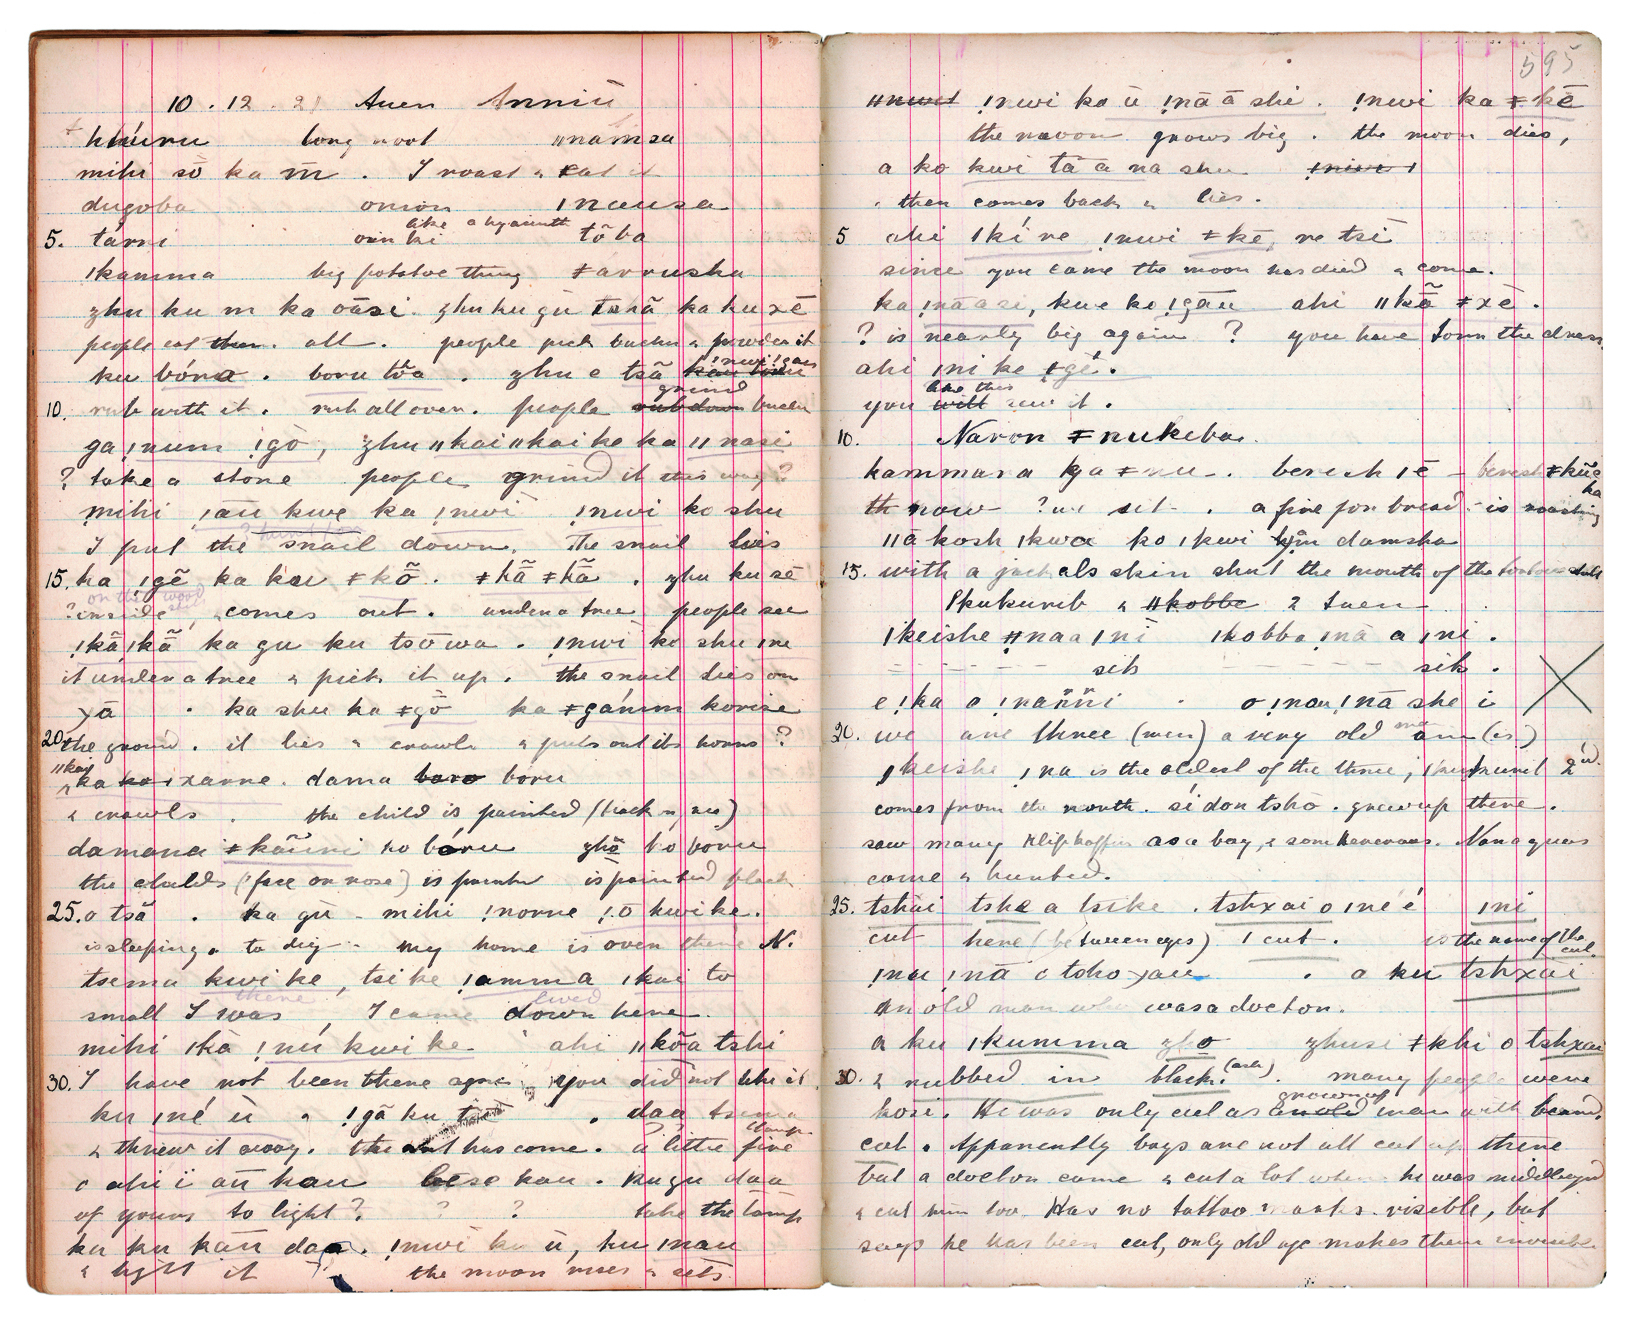 10 . 12 . 21 Auen
long root ǁnamsa
mihi sō ka m̄ . I roast & eat it
dugoba onion ǀnausa
like a hyacinth
5. tárni ki tōba
ǀkamma big potatoe thing ǂarrusha
zhu ku m ka oāsi. zhu ku gū tshā ka ku xē
people eat them. all. people pick buchu & powder it
ku bóra . boru tōa . zhu e tsā
grind
10. rub with it. rub all over. people rub down buchu
ga ǃnum ǃgō, zhu ǁkaiǁkai ke ka ǁnasi
? take a stone people grind it this way?
mihi ǃaū kwe ka ǃnwi ǃnwi ko shu
I put the snail down. The snail lies
15. ha ǃgē ka kau ǂkō. ǂkā ǂkā . zhu ku sē
on the wood
? inside, comes out. under a tree people see
ǃkāǃkā ka gu ku tsōwa . ǃnwi ko shu ǀne
it under a tree & pick it up. the snail lies on
ka shu ka ǂgō ka ǂgámm korise
20. the ground. it lies & crawls & puts out its horns ?
ǁkai
ka ko ǀxarre. dama boro boru
& crawls . the child is painted (back n, nes)
damana ǂkāūni ko bóru zhō ko boru
the childs (face on nose) is painted is painted black
25. o tsā . ka gū - mihi ǃnorne ǃō kwi ke.
is sleeping. to dig - my home is over there N.
tsema kwi ke, tsi ke ǃamma ǀkai to
there lived
small I was, I came down here.
mihi ǀkā ǃnú kwi ke ahi ǁkōa tshi
30. I have not been there again you did not like it
ku ǀné ū & ǃgā ku . daa tsema
lamp
& threw it away. the has come. a little fire
o ahi ï aū kau bēse kau. kugu daa
of yours to light? ? ? take the lamp
ku ku kaū daa. ǃnwi ko ū, ku ǀnau
& light it the moon rises & sets.
595
ǁnwet ǃnwi ko ū ǃnā ā she. ǃnwi ka ǂkē
the moon grows big. the moon dies,
a ko kwi tā ā na shu ǃnwi ǀ
& then comes back & lies.
5 ahi ǀkí ne ǃnwi ǂkē, ne tsī
since you came the moon has died & come.
ka ǃnā a si, kue ke ǃgāu ahi ǁkā ǂxē.
? is nearly big again ? you have torn the dress.
ahi ǀni ke ǂgē.
like this
you will sew it.
10. Naron ǂnukeba.
kammasa ga ǂnu . beresh ǀē - beresh ǂkūe
ka
th now ? we sit . a fire for bread - is roasting
ǁā kosh ǀkwa ko ǀkwi damsha
15. with a jackals skin shut the mouth of the tortoise shell
ǀkukurib & ǁkobbe 2 tuen
ǀkeishe ǂnaa ǀni ǀkobba ǃnā a ǀni.
- - - - - sib - - - - - sib.
e ǃka o ǃnañni . o ǃnau ǃnā she i
20. we are three (men) a very old man am (is)
ǀkeishe ǃna is the oldest of the three, 2nd.
comes from the north. sí don tshō. grew up there.
saw many Klipkaffirs as a boy, & some hereroes. Namaquas
came & hunted.
25. tshxai tshe a tsike . tshxai o ǀné é ǀni
cut here (between eyes) I cut. is the name of the cut.
ǃnu ǃnā o toho . a ku tshxai
an old man who was a doctor.
a ku ǀkumma zho zhusi ǂkhi o tshxai
30. & rubbed in black. (ash). many people were
grownup
kosi. He was only cut as an old man with beard.
cut. Apparently boys are not all cut up there
but a doctor came & cut a lot when he was middleaged
& cut him too. Has no tattoo marks visible, but
says he has been cut, only old age makes them invisible.